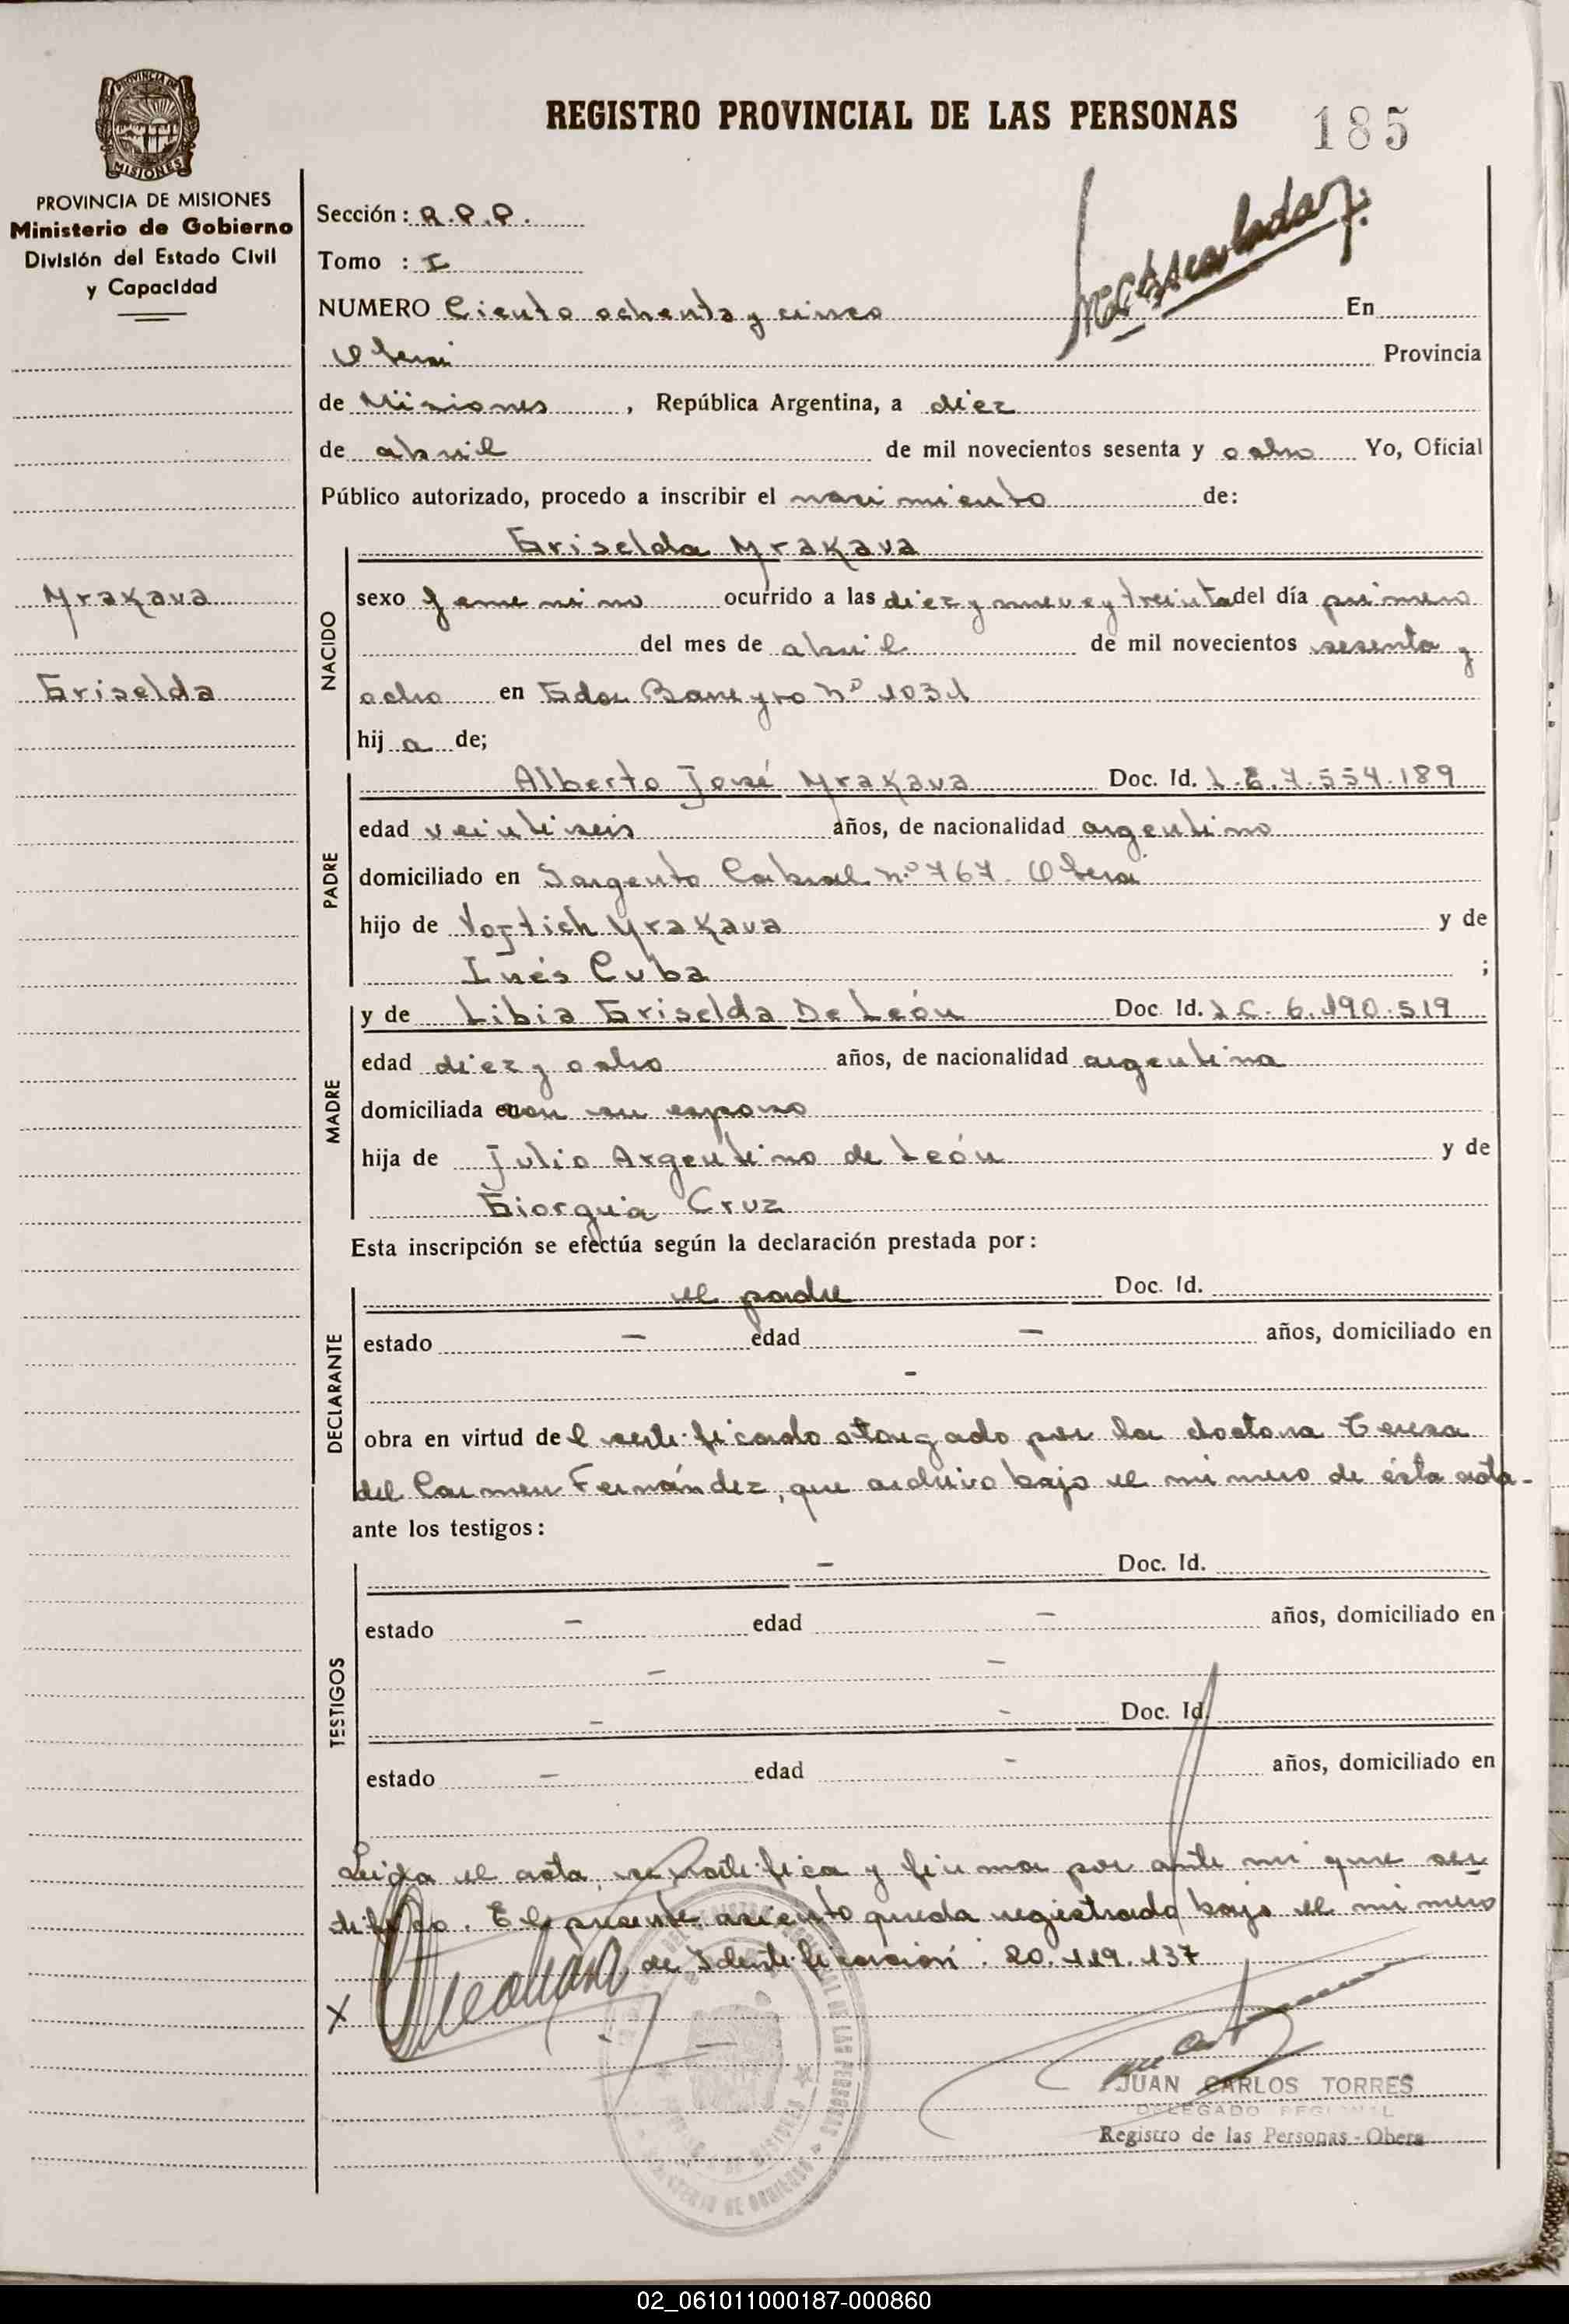 REGISTRO PROVINCIAL DE LAS PERSONAS
185
PROVINCIA DE
MISIONES
PROVINCIA DE MISIONES
Ministerio de Gobierno
División del Estado Civil
y Capacidad
Sección: R.P.P.
Tomo : I
NUMERO Ciento ochenta y cinco En
Oberá Provincia
de Misiones, República Argentina, a diez
de abril de mil novecientos sesenta y ocho Yo, Oficial
Público autorizado, procedo a inscribir el nacimiento de:
Yrakava
Griselda
NACIDO
Griselda Yrakava
sexo femenino ocurrido a las diez y nueve y treinta del día primero
del mes de abril de mil novecientos sesenta y
ocho en Gdor Bareyro nº 1031
hij a de;
PADRE
Alberto José Yrakava Doc. Id. L.E. 7.554.189
edad veintiseis años, de nacionalidad argentino
domiciliado en Sargento Cabral nº 767. Oberá
hijo de Vojtich Yrakava y de
Inés Cuba ;
MADRE
y de Libia Griselda De León Doc. Id. L C. 6.190.519
edad diez y ocho años, de nacionalidad argentina
domiciliada con su esposo
hija de Julio Argentino de León y de
Giorgia Cruz
Esta inscripción se efectúa según la declaración prestada por:
DECLARANTE
el padre Doc. Id.
estado — edad — años, domiciliado en
-
obra en virtud de l certificado otorgado por la doctora Teresa
del Carmen Fernández, que archivo bajo el número de ésta acta-
ante los testigos:
TESTIGOS
— Doc. Id.
estado — edad — años, domiciliado en
— —
— - Doc. Id.
estado — edad - años, domiciliado en
Leida el acta, se ratifica y firma por ante mi que cer
tifico. El presente asiento queda registrado bajo el número
de Identificación: 20.119.137
X
JUAN CARLOS TORRES
DELEGADO REGIONAL
Registro de las Personas - Obera
02_061011000187-000860